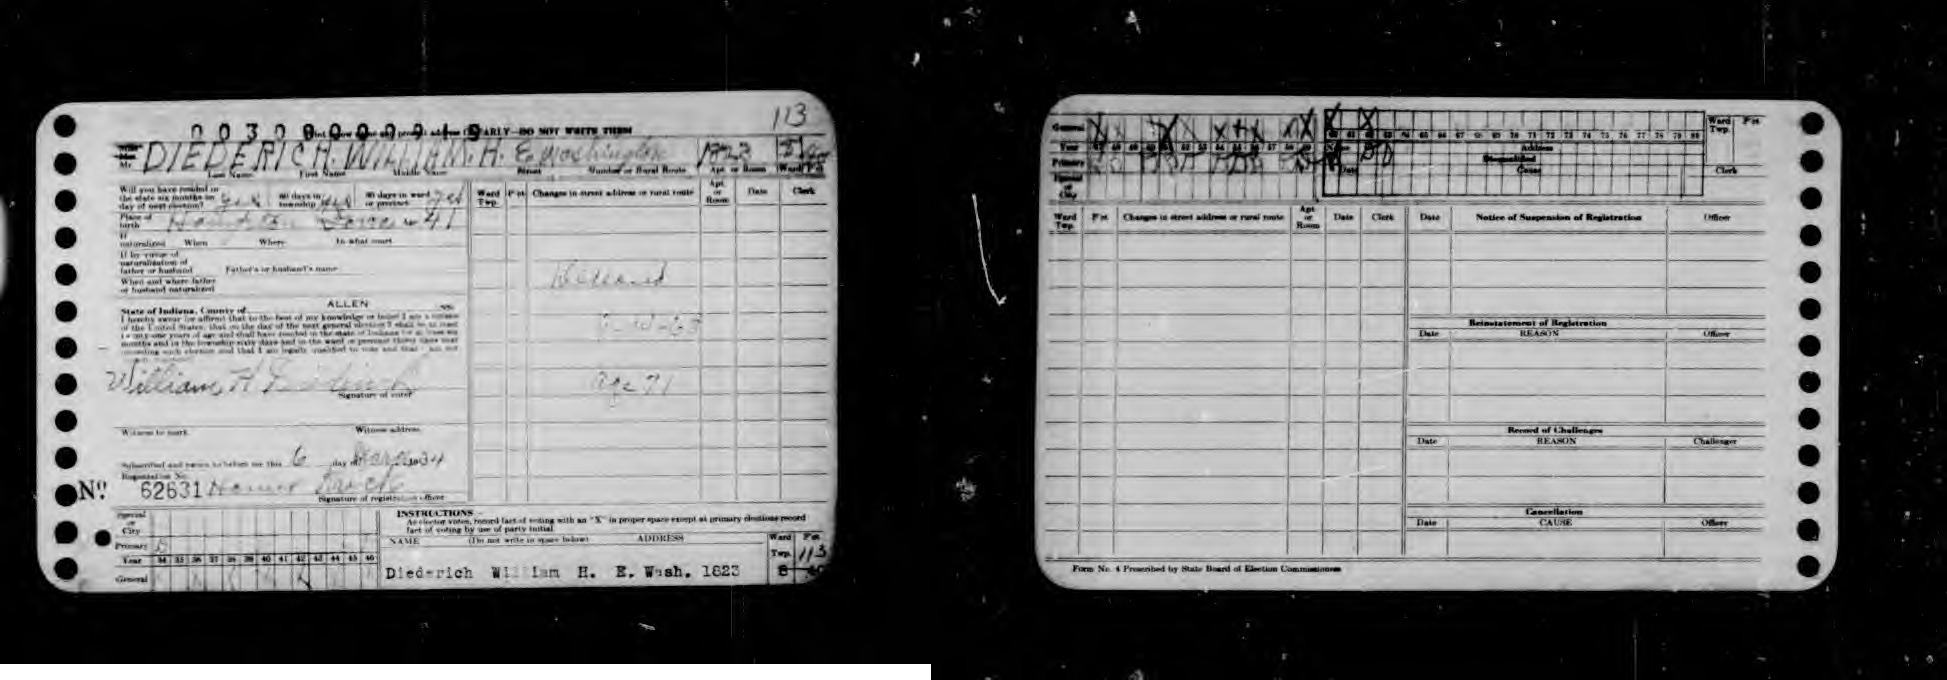 113
PLEASE DO NOT WRITE THERE
DIEDERICH. WILLIAM. H. E. Washington 1823
Last Name First Name Middle Name Street Number or Rural Route Apt. or Room Ward P'ct
Will you have resided in
the state six months on
day of next election? yes 60 days in township yes 30 days in ward or precinct? yes
Place of
birth 41
If
naturalized When Where In what court
If by virtue of
naturalization of
father or husband Father's or husband's name
When and where father
or husband naturalized
ALLEN
State of Indiana, County of ss:
I hereby swear (or affirm) that to the best of my knowledge or belief I am a citizen
of the United States, that on the day of the next general election I shall be at least
twenty-one years of age and shall have resided in the state of Indiana for at least six
months and in the township sixty days and in the ward or precinct thirty days next
preceding such election and that I am legally qualified to vote and that I am not
William H Diederich
Signature of voter
Witness to mark Witness address
Subscribed and sworn to before me this 6 day of 1934
Registration No.
Nº 62631
Signature of registration officer
Ward Twp. P'ct Changes in street address or rural route Apt. or Room Date Clerk
Deceased
age 71
Special
or
City
Primary D
Year 34 35 36 37 38 39 40 41 42 43 44 45 46
General
INSTRUCTIONS
As elector votes, record fact of voting with an "X" in proper space except at primary elections record
fact of voting by use of party initial.
NAME (Do not write in space below) ADDRESS Ward P'ct
Twp. 113
Diederich William H. E. Wash. 1823 8 40
General
Year 47 48 49 50 51 52 53 54 55 56 57 58 59 60 61 62 63 64 65 66 67 68 69 70 71 72 73 74 75 76 77 78 79 80
Primary
Special
or
City
Name Address
Date Disqualified
Cause
Ward Twp. P'ct
Clerk
Ward Twp. P'ct Changes in street address or rural route Apt. or Room Date Clerk
Date Notice of Suspension of Registration Officer
Reinstatement of Registration
Date REASON Officer
Record of Challenges
Date REASON Challenger
Cancellation
Date CAUSE Officer
Form No. 4 Prescribed by State Board of Election Commissioners